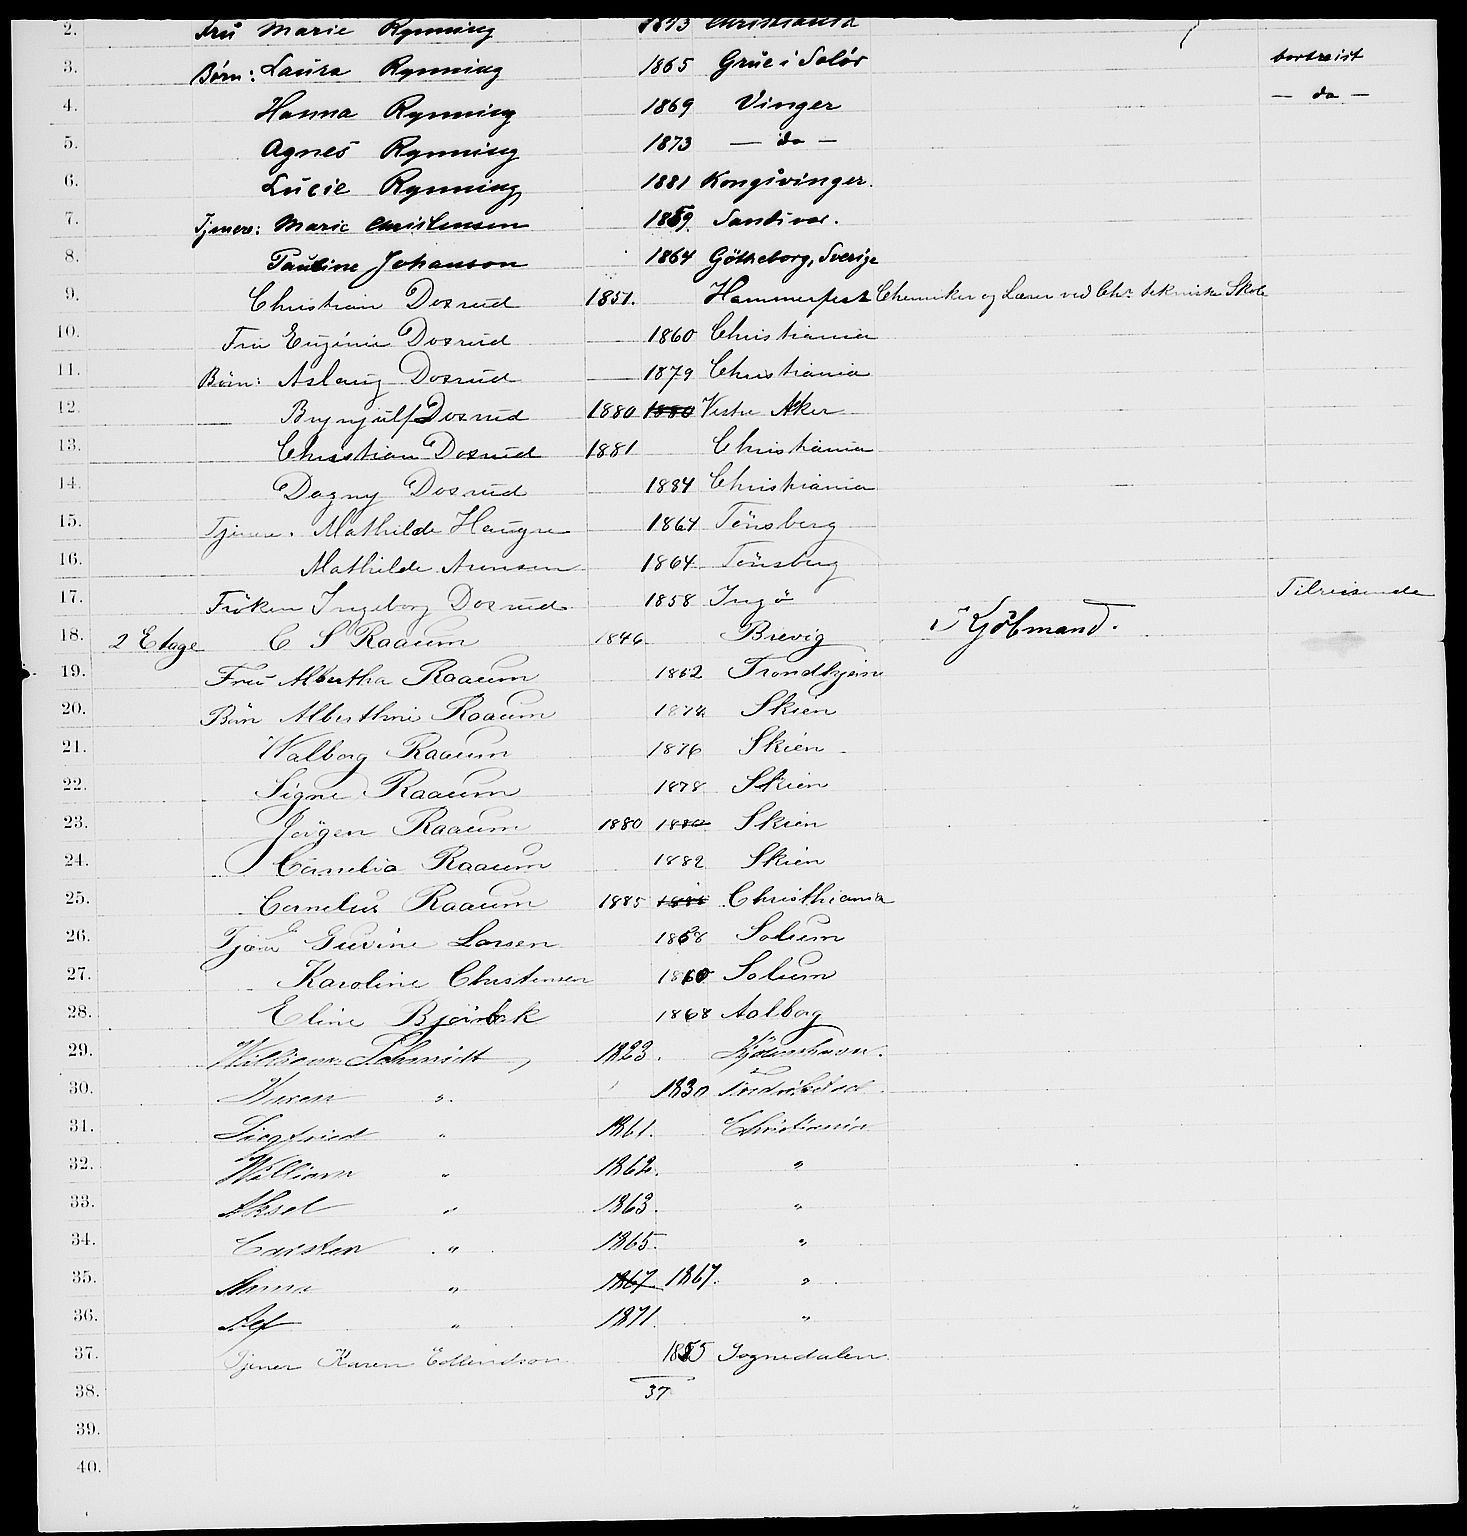 2. Fru Marie Rynning 1843 Christiania
3. Børn: Laura Rynning 1865 Grue i Solør bortreist
4. Hanna Rynning 1869 Vinger — do —
5. Agnes Rynning 1873 — do —
6. Lucie Rynning 1881 Kongsvinger.
7. Tjenere: Marie Christensen 1859. Sandsvær.
8. Pauline Johanson 1864 Götheborg, Sverige
9. Christian Dosrud 1851. Hammerfest Chemiker og Lærer ved Chr. tekniske Skole
10. Fru Eugénie Dosrud 1860 Christiania
11. Børn: Aslaug Dosrud 1879 Christiania
12. Brynjulf Dosrud 1880 1880 Vestre Aker
13. Christian Dosrud 1881 Christiania
14. Dagny Dosrud 1884 Christiania
15. Tjenere. Mathilde Haugen 1864 Tönsberg
16. Mathilde Arensen 1864 Tönsberg
17. Fröken Ingeborg Dosrud 1858 Ingö Tilreisende
18. 2 Etage C S Raaum 1846 Brevig Kjöbmand.
19. Fru Albertha Raaum 1852 Trondhjem
20. Börn Alberthine Raaum 1874 Skien
21. Walborg Raaum 1876 Skien
22. Signe Raaum 1878 Skien
23. Jörgen Raaum 1880 1880 Skien
24. Cornelia Raaum 1882 Skien
25. Cornelius Raaum 1885 1885 Christhiania
26. Tjener Gurine Larsen 1858 Solum
27. Karoline Christensen 1860 Solum
28. Eline Aalborg 1868
29. William Schmidt 1823. Kjøbenhavn.
30. " 1830 Fredrikstad
31. Siegfried " 1861. Christiania
32. William " 1862. "
33. Aksel " 1863. "
34. Carsten " 1865. "
35. Anna " 1867 1867. "
36. Alf " 1871. "
37. Tjener Karen 1855 Sognedalen
38. 37
39.
40.